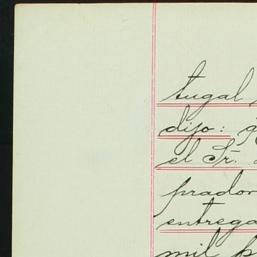 tugal
dijo:
el Sr.
prador
entrega
mil p